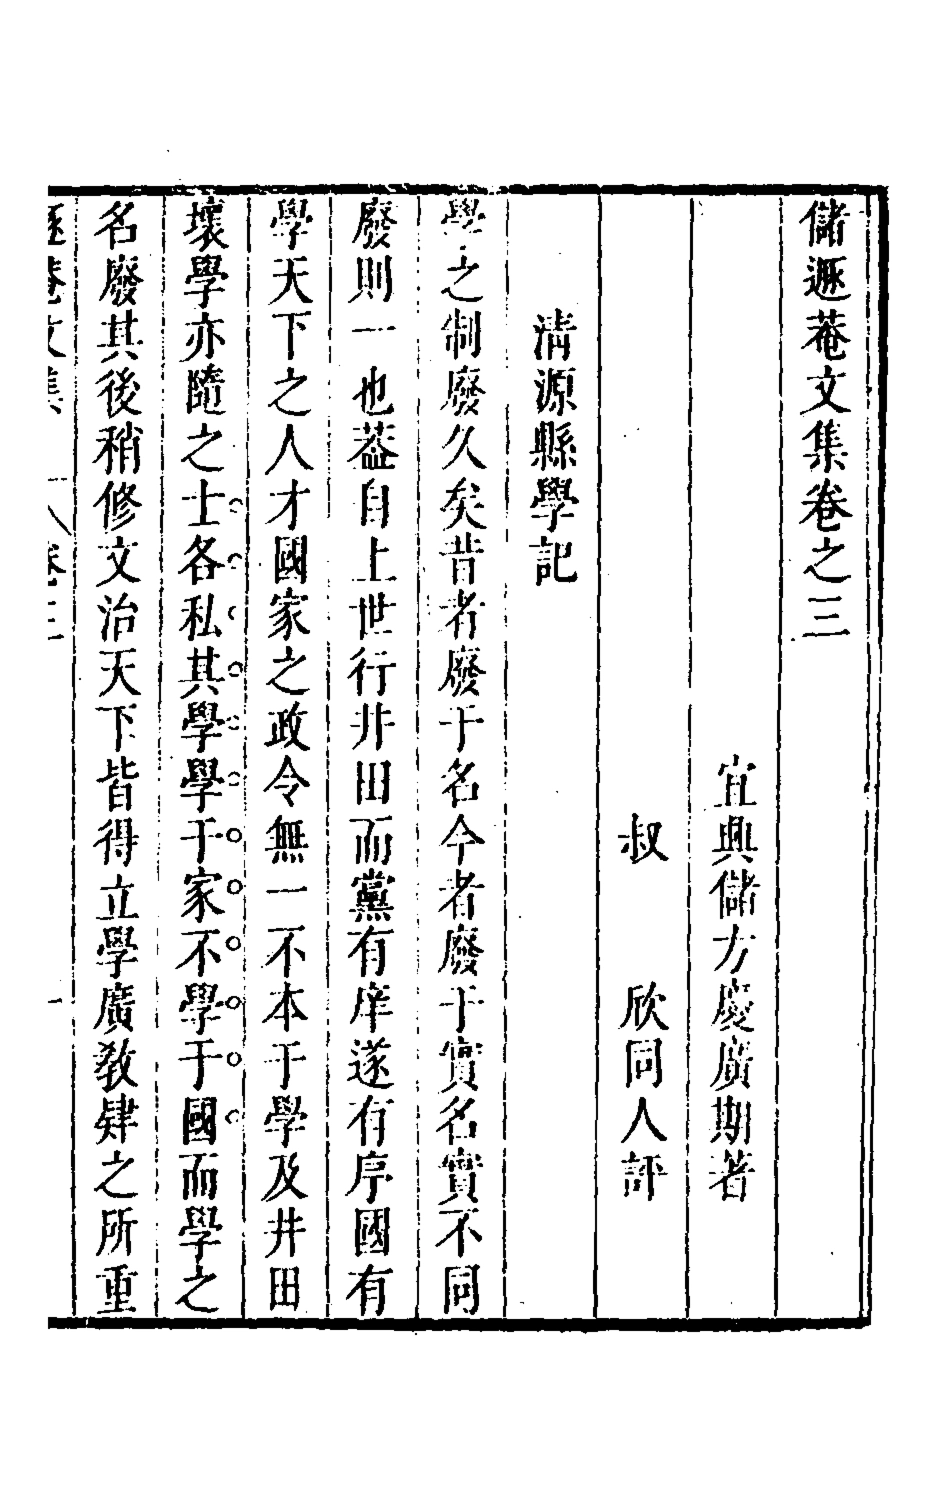 儲遯菴文集卷之三
宜興儲方慶廣期著
叔　欣同人評
清源縣學記
學之制廢久矣昔者廢于名今者廢于實名實不同
廢則一也葢自上世行井田而黨有庠遂有序國有
學天下之人才國家之政令無一不本于學及井田
壞學亦隨之士各私其學學于家不學于國而學之
名廢其後稍修文治天下皆得立學廣敎肄之所重
遯菴文集　卷三　一